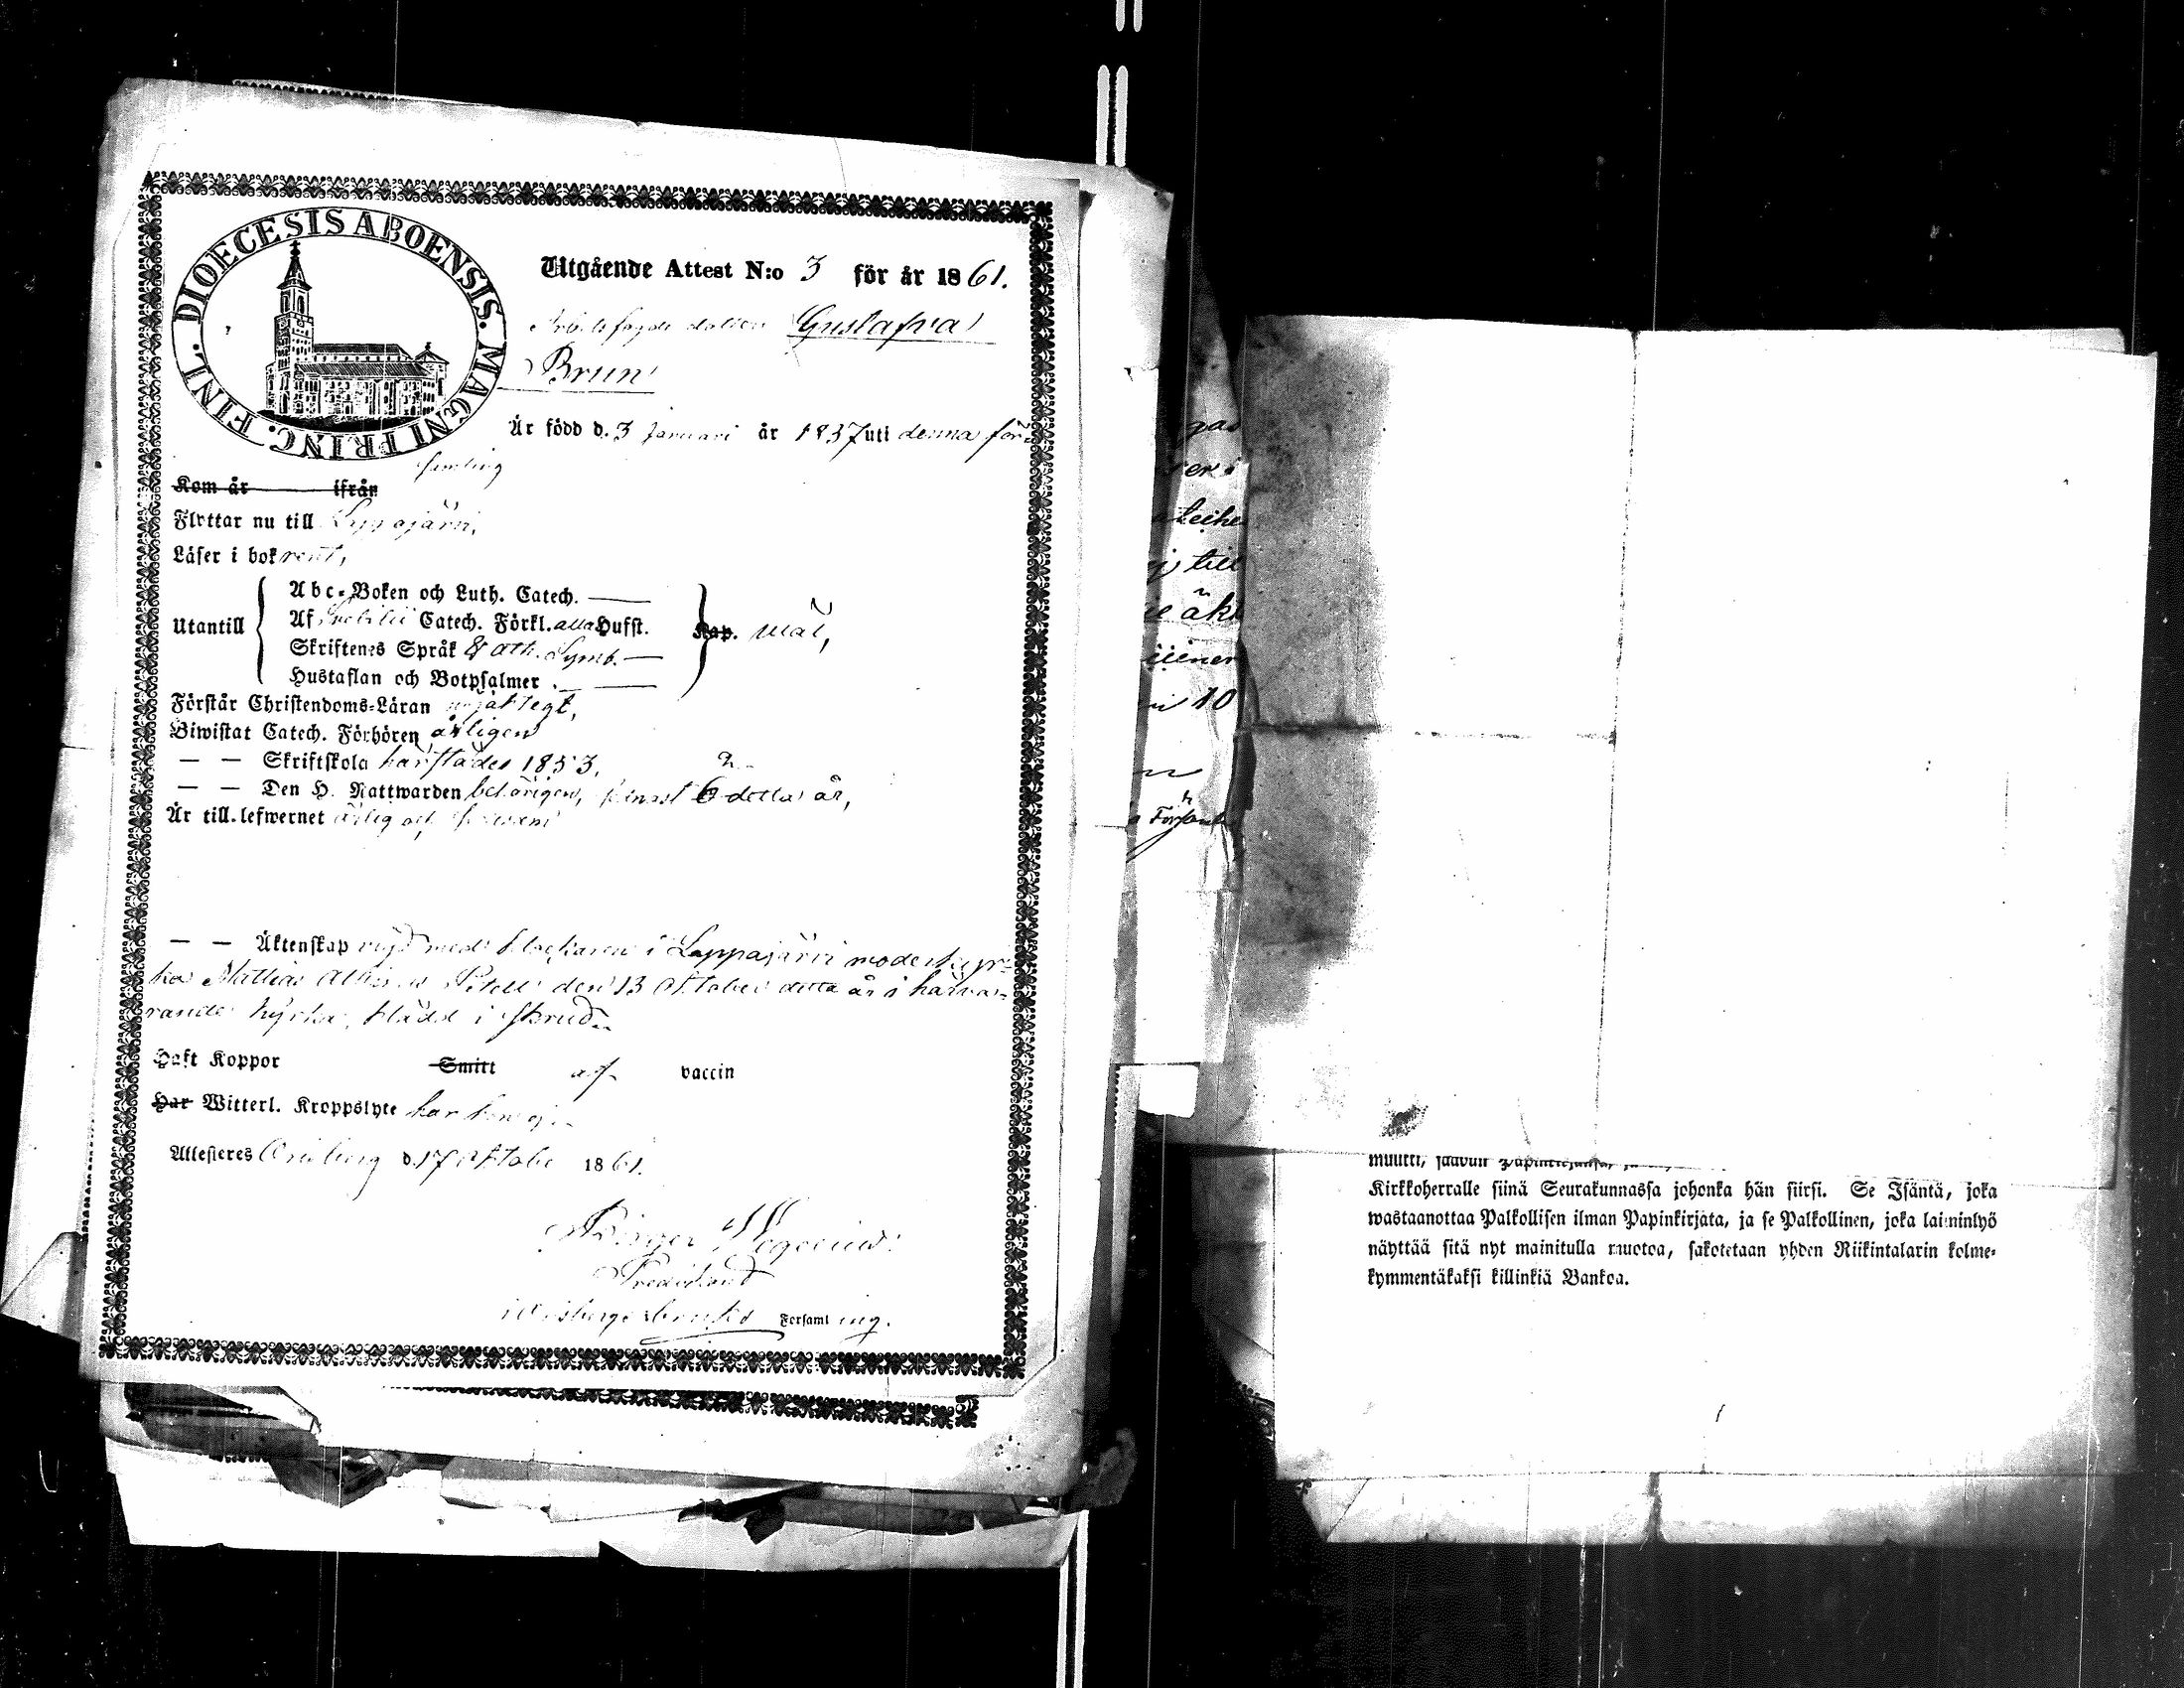 DIOECESIS ABOENSIS. MAGNI PRINC. FINL.
Utgående Attest N:o 3 för år 1861.
Gustafva
Brun
Är född d. 3 Januari år 1837 uti denna för-
samling
Kom år ifrån
Flyttar nu till Lappajärvi,
Läser i bok rent,
Utantill
Abc-Boken och Luth. Catech.
Af Svebilii Catech. Förkl. alla Hufst.
Skriftenes Språk & Ath. Symb.
Hustaflan och Botpsalmer
Kap. väl,
Förstår Christendoms-Läran
Biwistat Catech. Förhören årligen
— — Skriftskola härstädes 1853,
— — Den H. Nattwarden detta år,
Är till lefwernet ärlig och
— — Äktenskap vigd med klockaren i Lappajärvi moderkyr-
ka Mattias den 13 Oktober detta år i härva-
rande kyrka, klädd i skrud.
Haft Koppor Smitt af vaccin
Har Witterl. Kroppslyte har hon ej.
Attesteres Orisberg d. 17 Oktober 1861.
Predikant
i Orisbergs bruks Församling.
gas
till
10
muutti, saavun
Kirkkoherralle siinä Seurakunnassa johonka hän siirsi. Se Isäntä, joka
wastaanottaa Palkollisen ilman Papinkirjata, ja se Palkollinen, joka laiminlyö
näyttää sitä nyt mainitulla muotoa, sakotetaan yhden Riikintalarin kolme-
kymmentäkaksi killinkiä Bankoa.